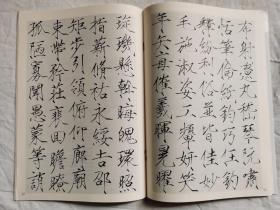 布射遼丸嵇琴阮嘯
恬筆倫紙鈞巧任釣
釋紛利俗並皆佳妙
毛施淑姿工顰妍笑
年矢每催羲暉晃耀
琁璣懸斡晦魄環照
指薪脩祜永綏吉邵
矩步引領俯仰廊廟
束帶矜莊裴回瞻眺
孤陋寡聞愚蒙等誚